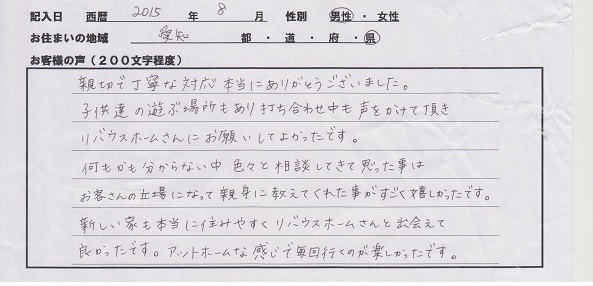 記入日 西暦 2015 年 8 月 性別 男性・女性
お住まいの地域 愛知 都・道・府・県
お客様の声(200文字程度)
親切で丁寧な対応本当にありがとうございました。
子供達の遊ぶ場所もあり打ち合わせ中も声をかけて頂き
リバウスホームさんにお願いしてよかったです。
何もかも分からない中色々と相談してきて思った事は
お客さんの立場になって親身に教えてくれた事がすごく嬉しかったです。
新しい家も本当に住みやすくリバウスホームさんと出会えて
良かったです。アットホームな感じで毎回行くのが楽しかったです。